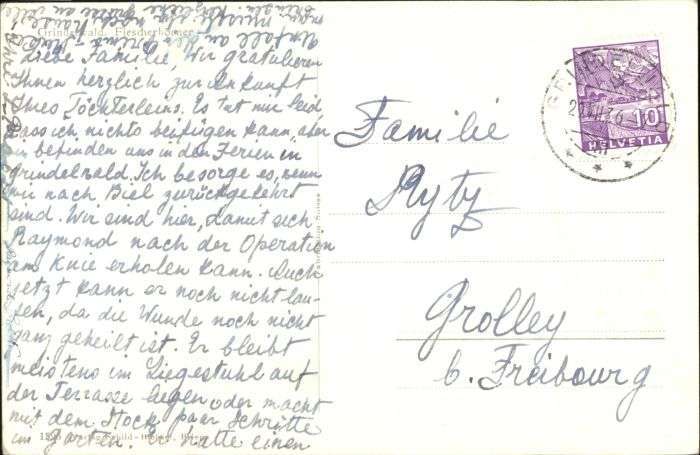 Grindelwald, Fiescherhörner
Liebe Familie, Wir gratulieren
Ihnen herzlich zur Ankunft
Ihres Töchterleins. Es tut mir leid
dass ich nichts beifügen kann, aber
wir befinden uns in den Ferien in
Grindelwald. Ich besorge es, wenn
wir nach Biel zurückgekehrt
sind. Wir sind hier, damit sich
Raymond nach der Operation
am Knie erholen kann. Auch
jetzt kann er noch nicht lau-
fen, da die Wunde noch nicht
ganz geheilt ist. Er bleibt
meistens im Liegestuhl auf
der Terrasse liegen oder macht
mit dem Stock paar Schritte
im Garten. Er hatte einen
Unfall an
man musste ihn
herzliche Grüsse an alle
Ihre
Familie
Ryty
Grolley
b. Freibourg
10
HELVETIA